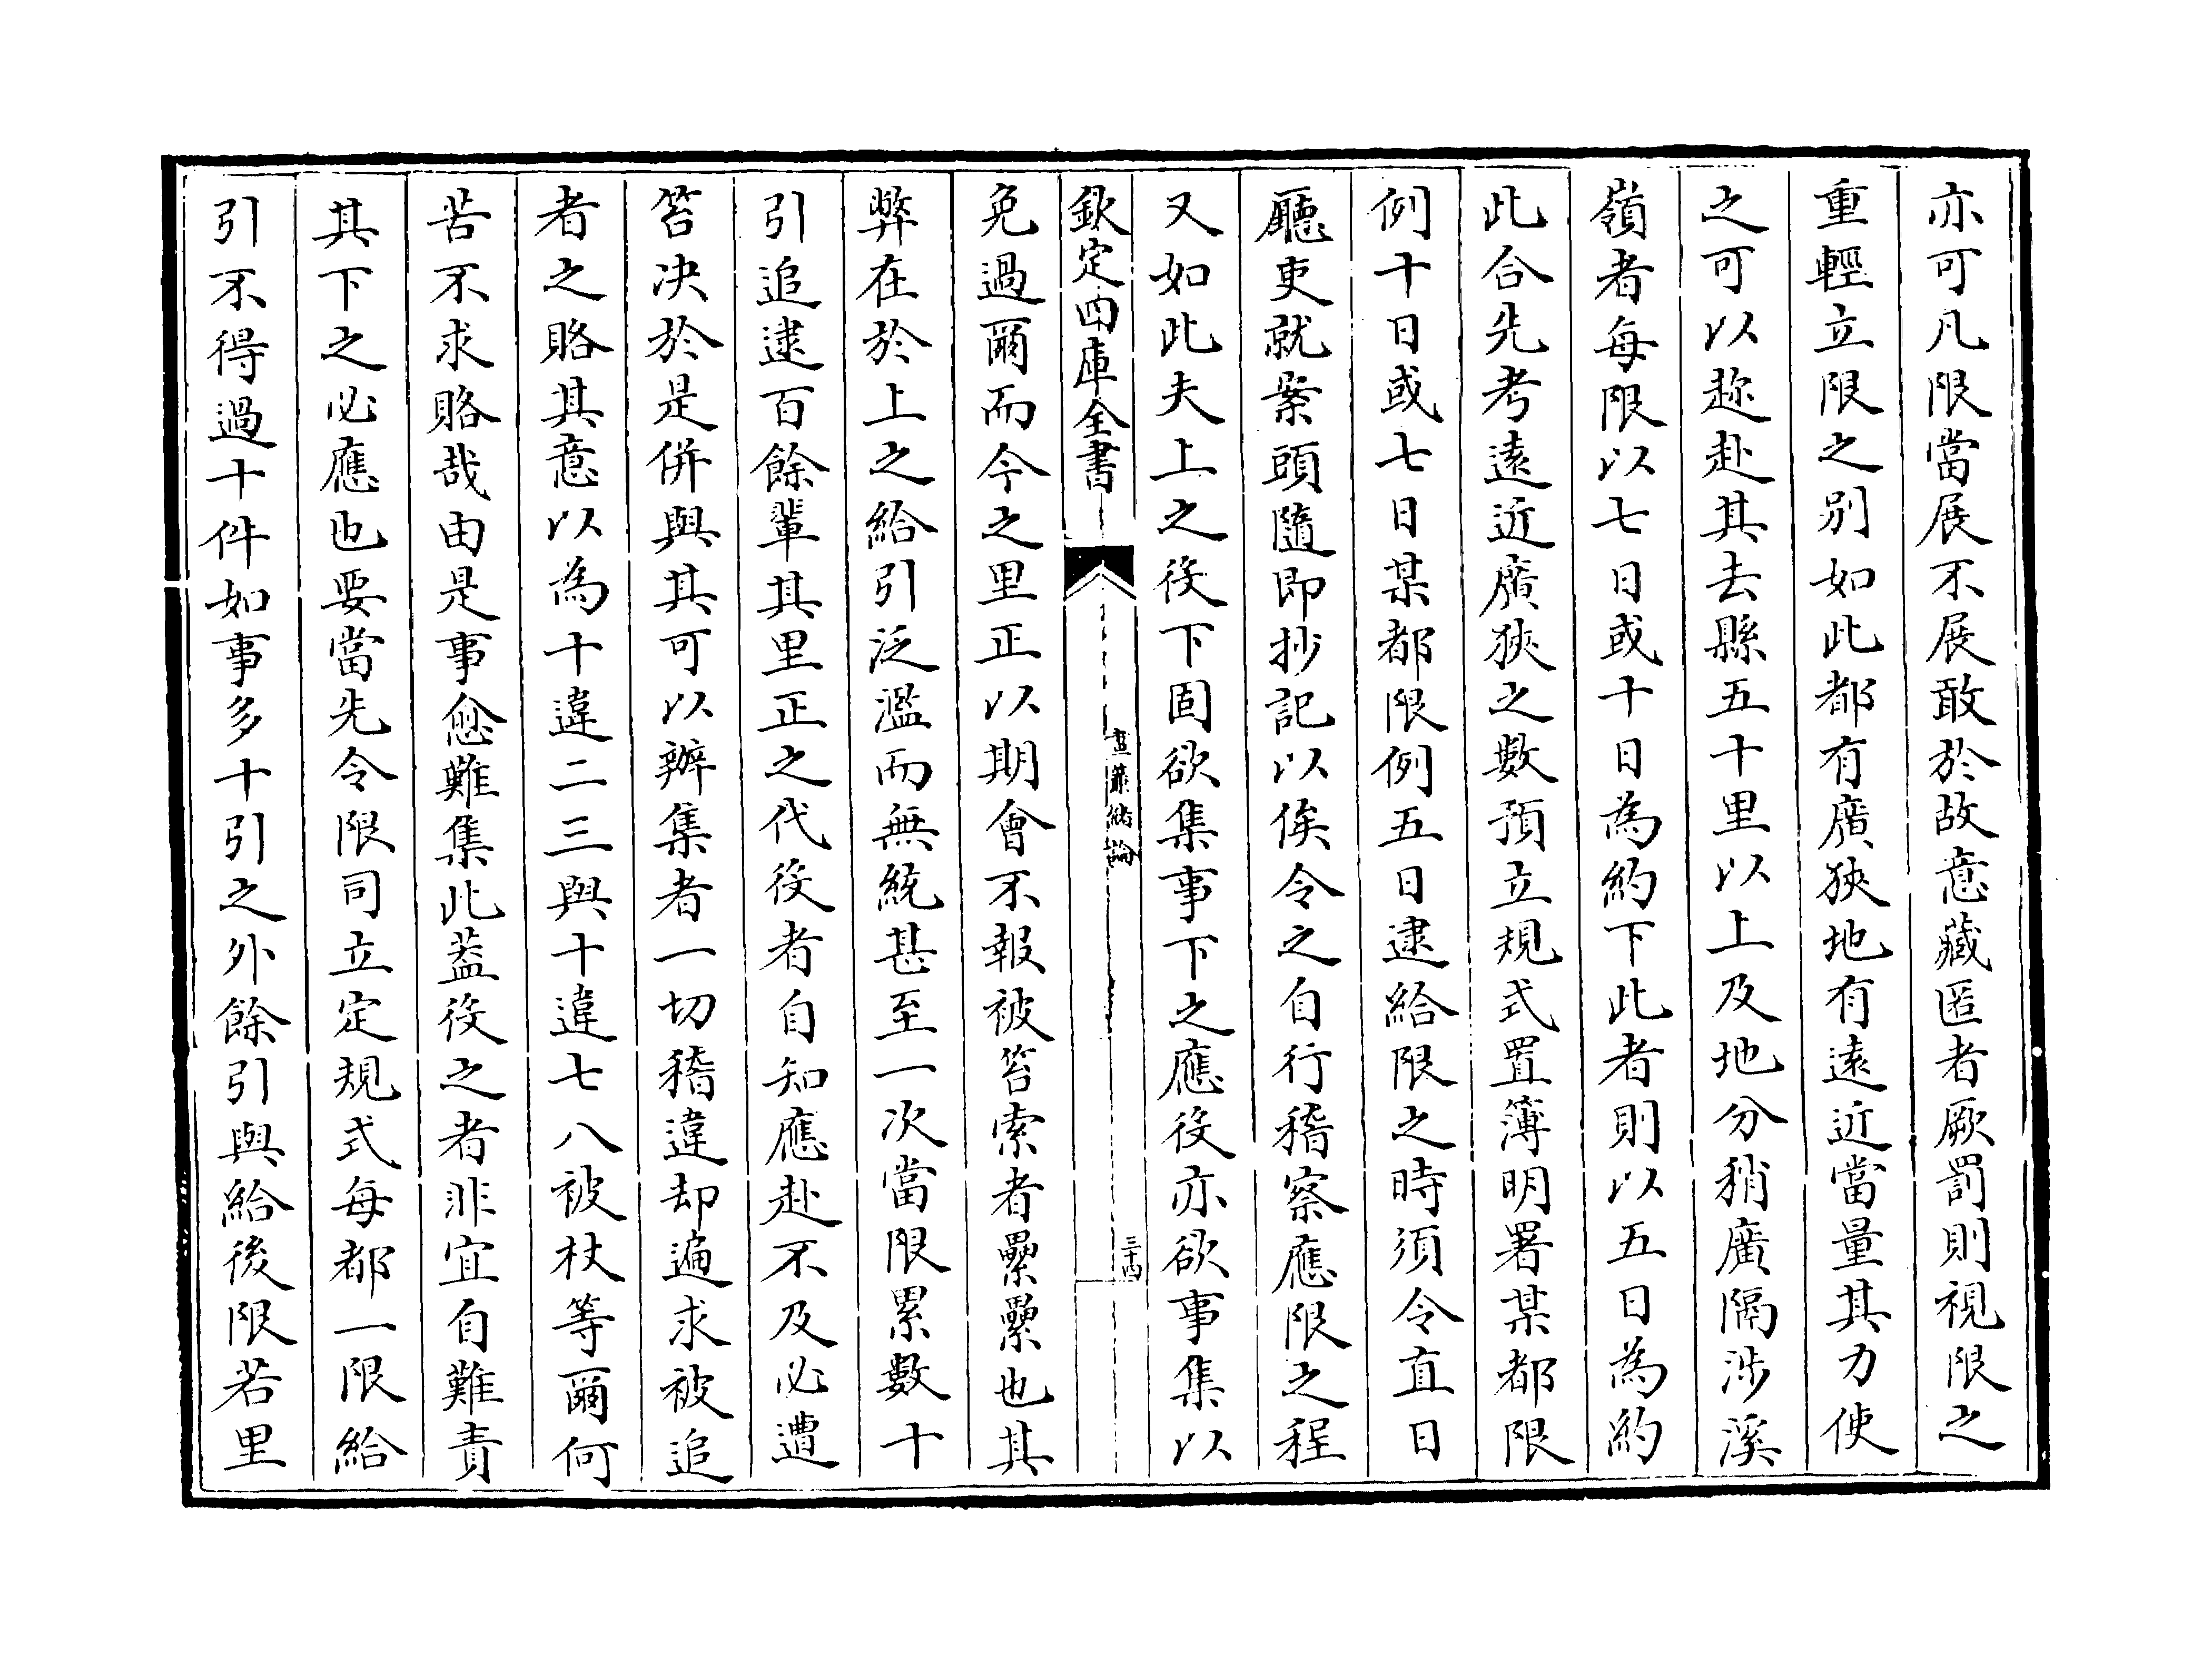 亦可凡限當展不展敢於故意藏匿者厥罰則視限之
重輕立限之别如此都有廣狹地有逺近當量其力使
之可以趂赴其去縣五十里以上及地分稍廣隔涉溪
嶺者每限以七日或十日為約下此者則以五日為約
此合先考逺近廣狹之數預立規式置簿明署某都限
例十日或七日某都限例五日逮給限之時須令直日
廳吏就案頭隨即抄記以俟令之自行稽察應限之程
又如此夫上之役下固欲集事下之應役亦欲事集以
欽定四庫全書
晝簾緒論
三十四
免過爾而今之里正以期會不報被笞索者纍纍也其
弊在於上之給引泛濫而無統甚至一次當限累數十
引追逮百餘軰其里正之代役者自知應赴不及必遭
笞决於是併與其可以辦集者一切稽違却遍求被追
者之賂其意以為十違二三與十違七八被杖等爾何
苦不求賂哉由是事愈難集此葢役之者非宜自難責
其下之必應也要當先令限司立定規式每都一限給
引不得過十件如事多十引之外餘引與給後限若里